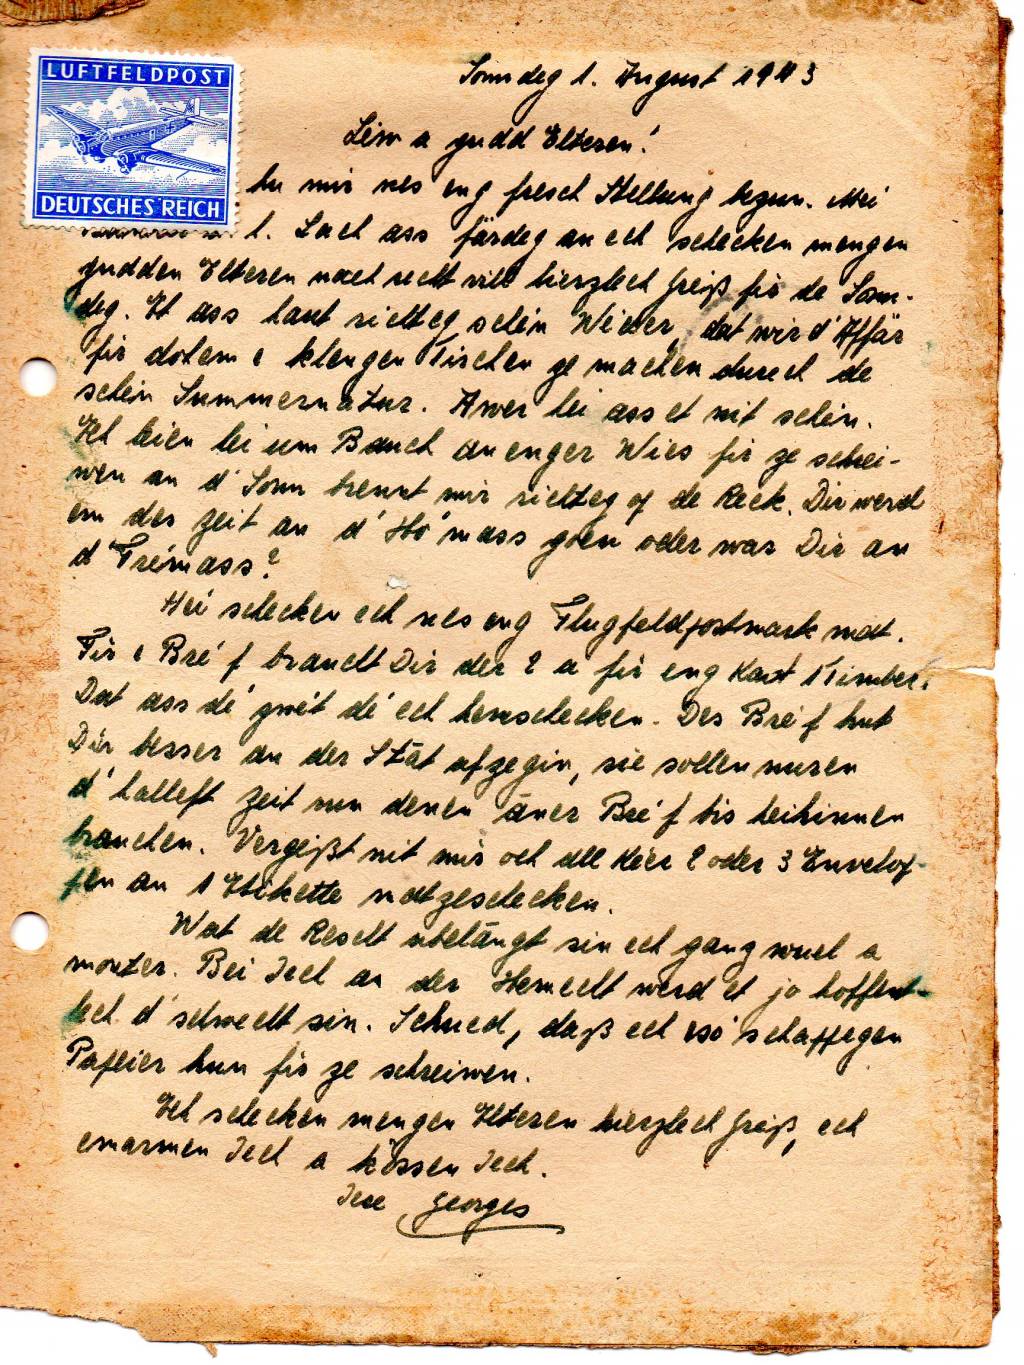 LUFTFELDPOST
DEUTSCHES REICH
Sonndeg 1. August 1943
Léiw a gudd Elteren!
hu mir nes eng fresch Stellung bezun. Mei
l. Lach ass färdeg an ech schecken mengen
gudden Elteren nach recht vill hierzlech Greiß fir de Sonn-
deg. Et ass haut richteg schéin Wieder, dat wir d'Affär
fir dohem e klengen Tischen ze machen duerch de
schéin Summernatur. Awer hei ass et nit schéin.
Ech leien hei um Bauch an enger Wies fir ze schrei-
wen an d'Sonn brennt mir richteg op de Reck. Dir werd
em des Zeit an d'Ho'mass goën oder war Dir an
d'Fréimass?
Hei schecken ech nes eng Flugfeldpostmark mat.
Fir e Bréf braucht Dir der 2 a fir eng Kart 1 Timber.
Dat ass dé gwët dé ech hemschecken. Des Bréf hut
Dir besser an der Stât ofzegin, sie sollen nuren
d'halleft Zeit vun denen âner Bréf bis heihinnen
brauchen. Vergeßt nit mir och all Kéier 2 oder 3 Envelop-
pen an 1 Etikette matzeschecken.
Wat de Rescht ubelângt sin ech gang wuel a
monter. Bei Iech an der Hemecht werd et jo hoffent-
lech d'selwecht sin. Schued, daß ech esó schappegen
Papeier hun fir ze schreiwen.
Ech schecken mengen Elteren hierzlech Greiß, ech
emarmen Iech a kössen Iech.
Iere Georges